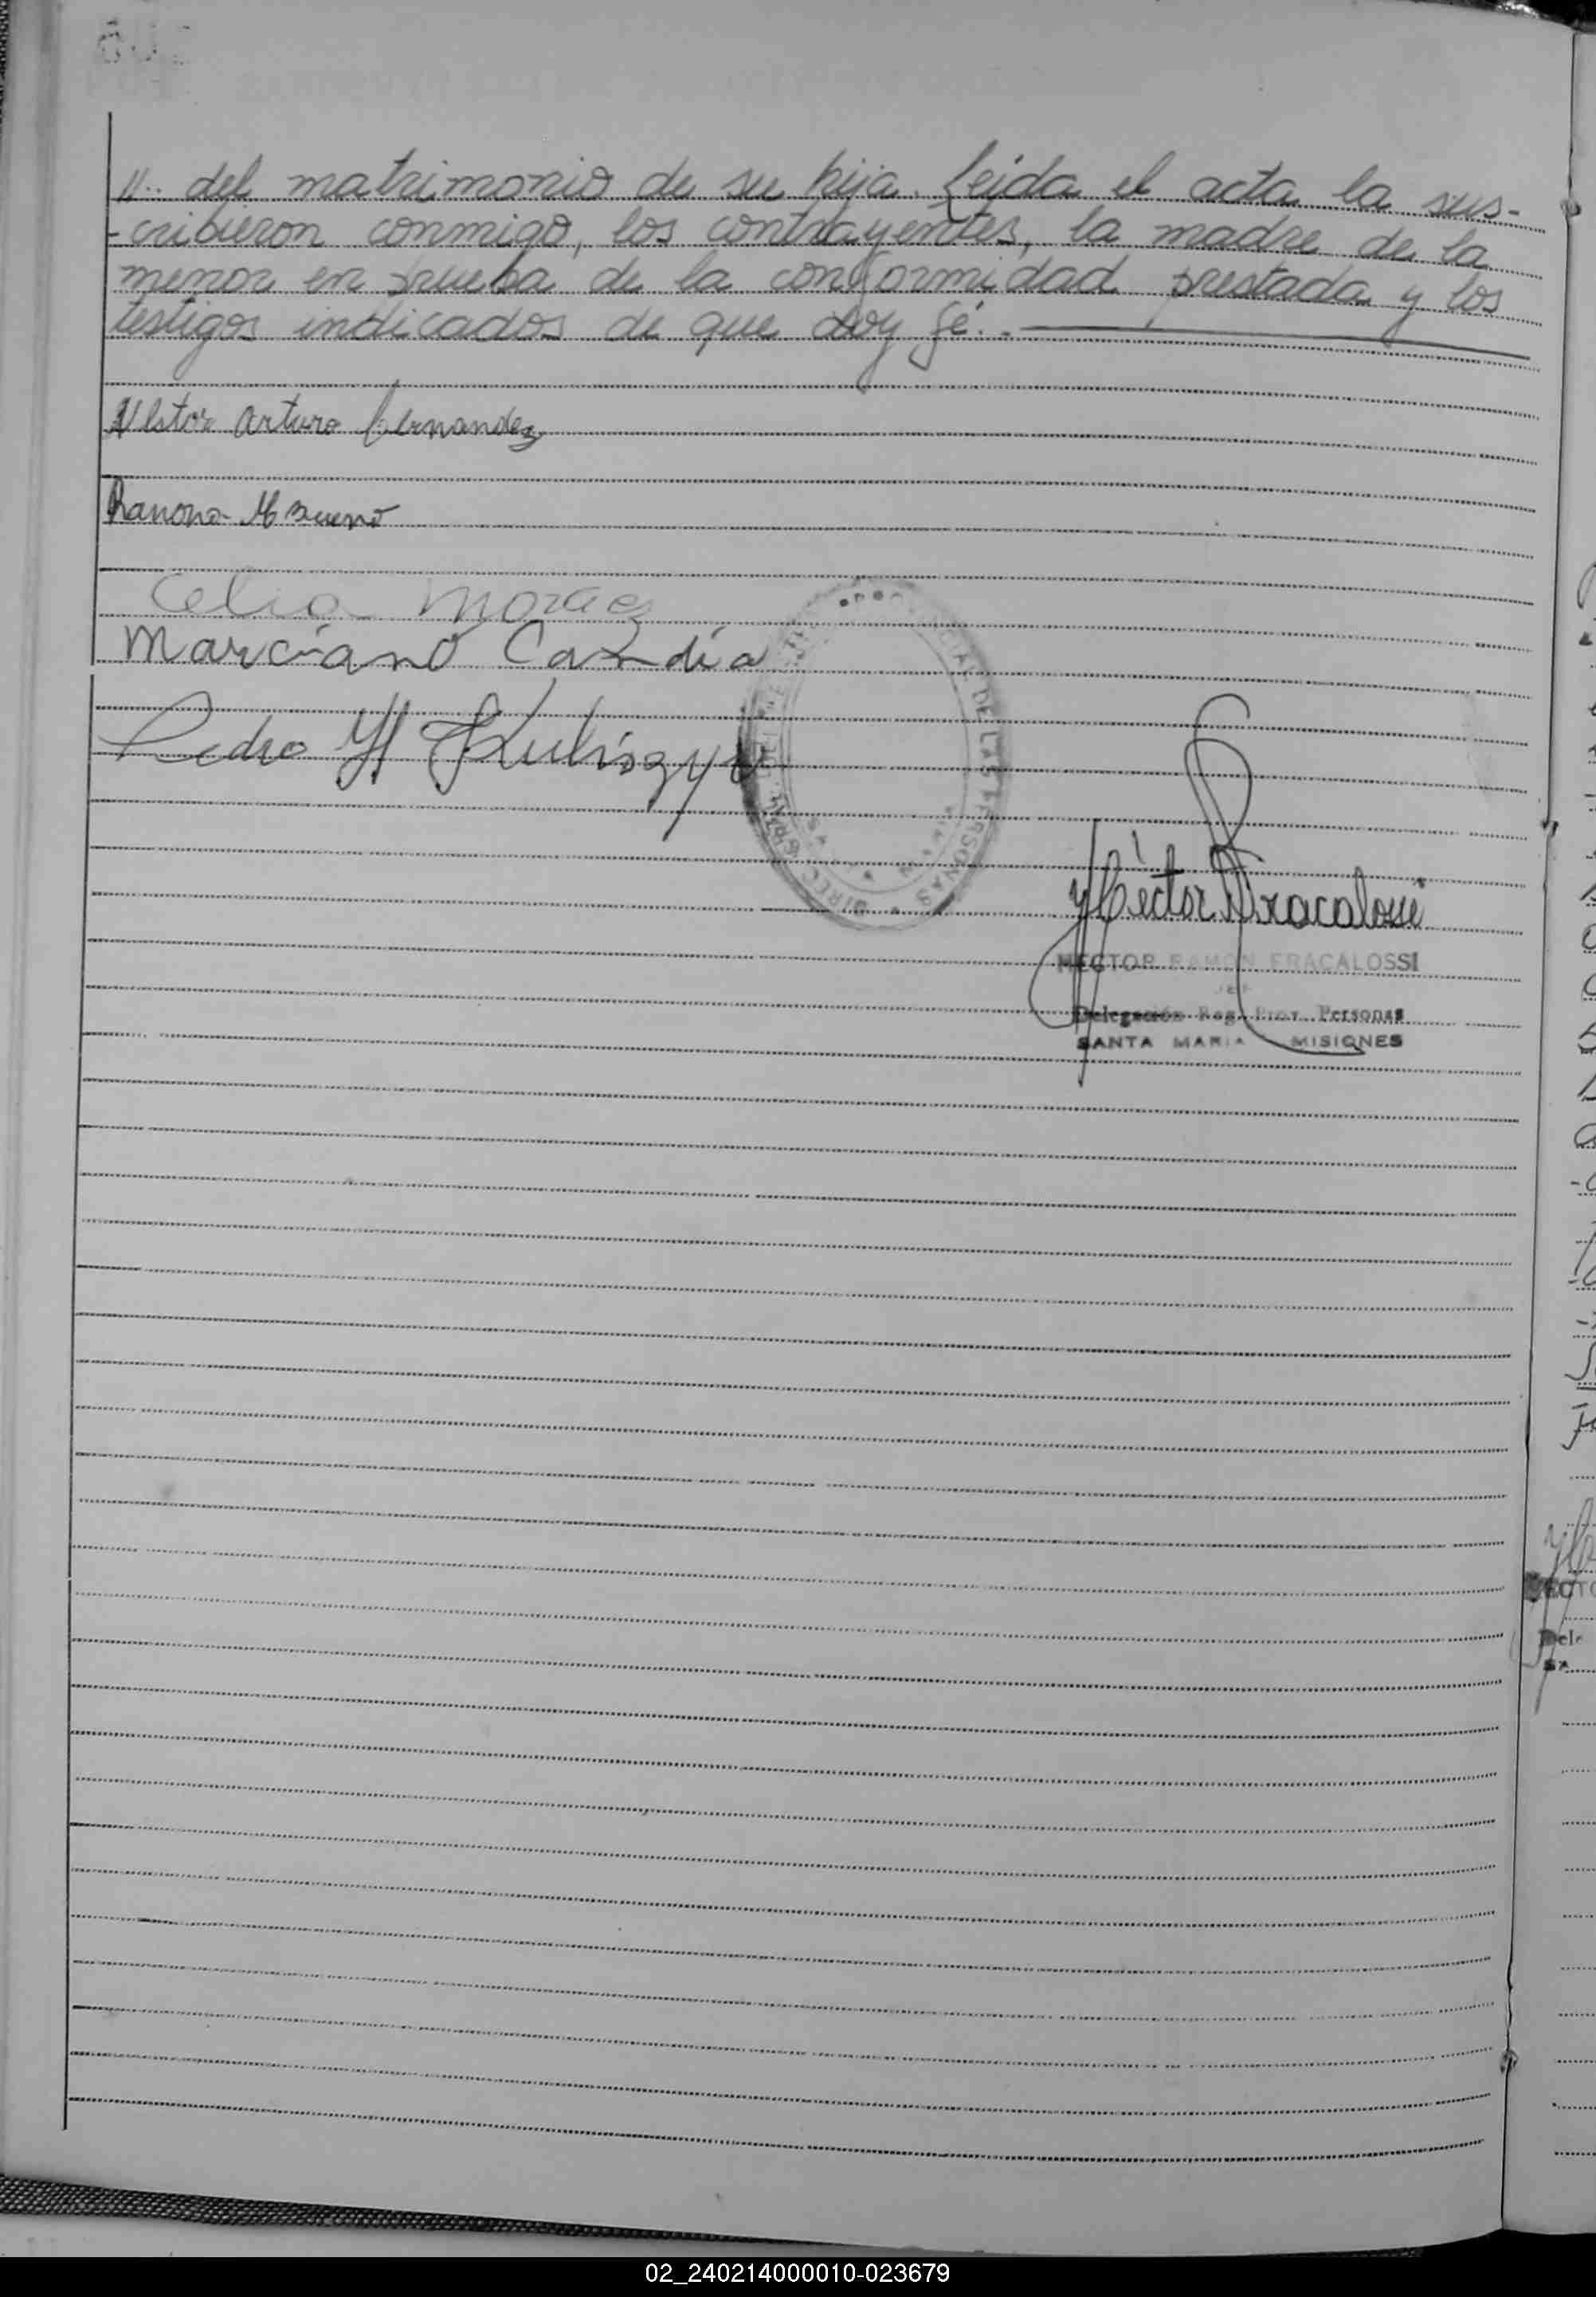 //.. del matrimonio de su hija. Leída el acta la sus-
-cribieron conmigo, los contrayentes, la madre de la
menor en prueba de la conformidad prestada y los
testigos indicados de que doy fé..
Nestor Arturo Fernandez
Ramona
Celia Moraez
Marciano Candia
Pedro
DE LAS PERSONAS
Héctor Fracalossi
HECTOR RAMON FRACALOSSI
JEFE
Delegación Reg. Prov. Personas
SANTA MARIA MISIONES
02_240214000010-023679